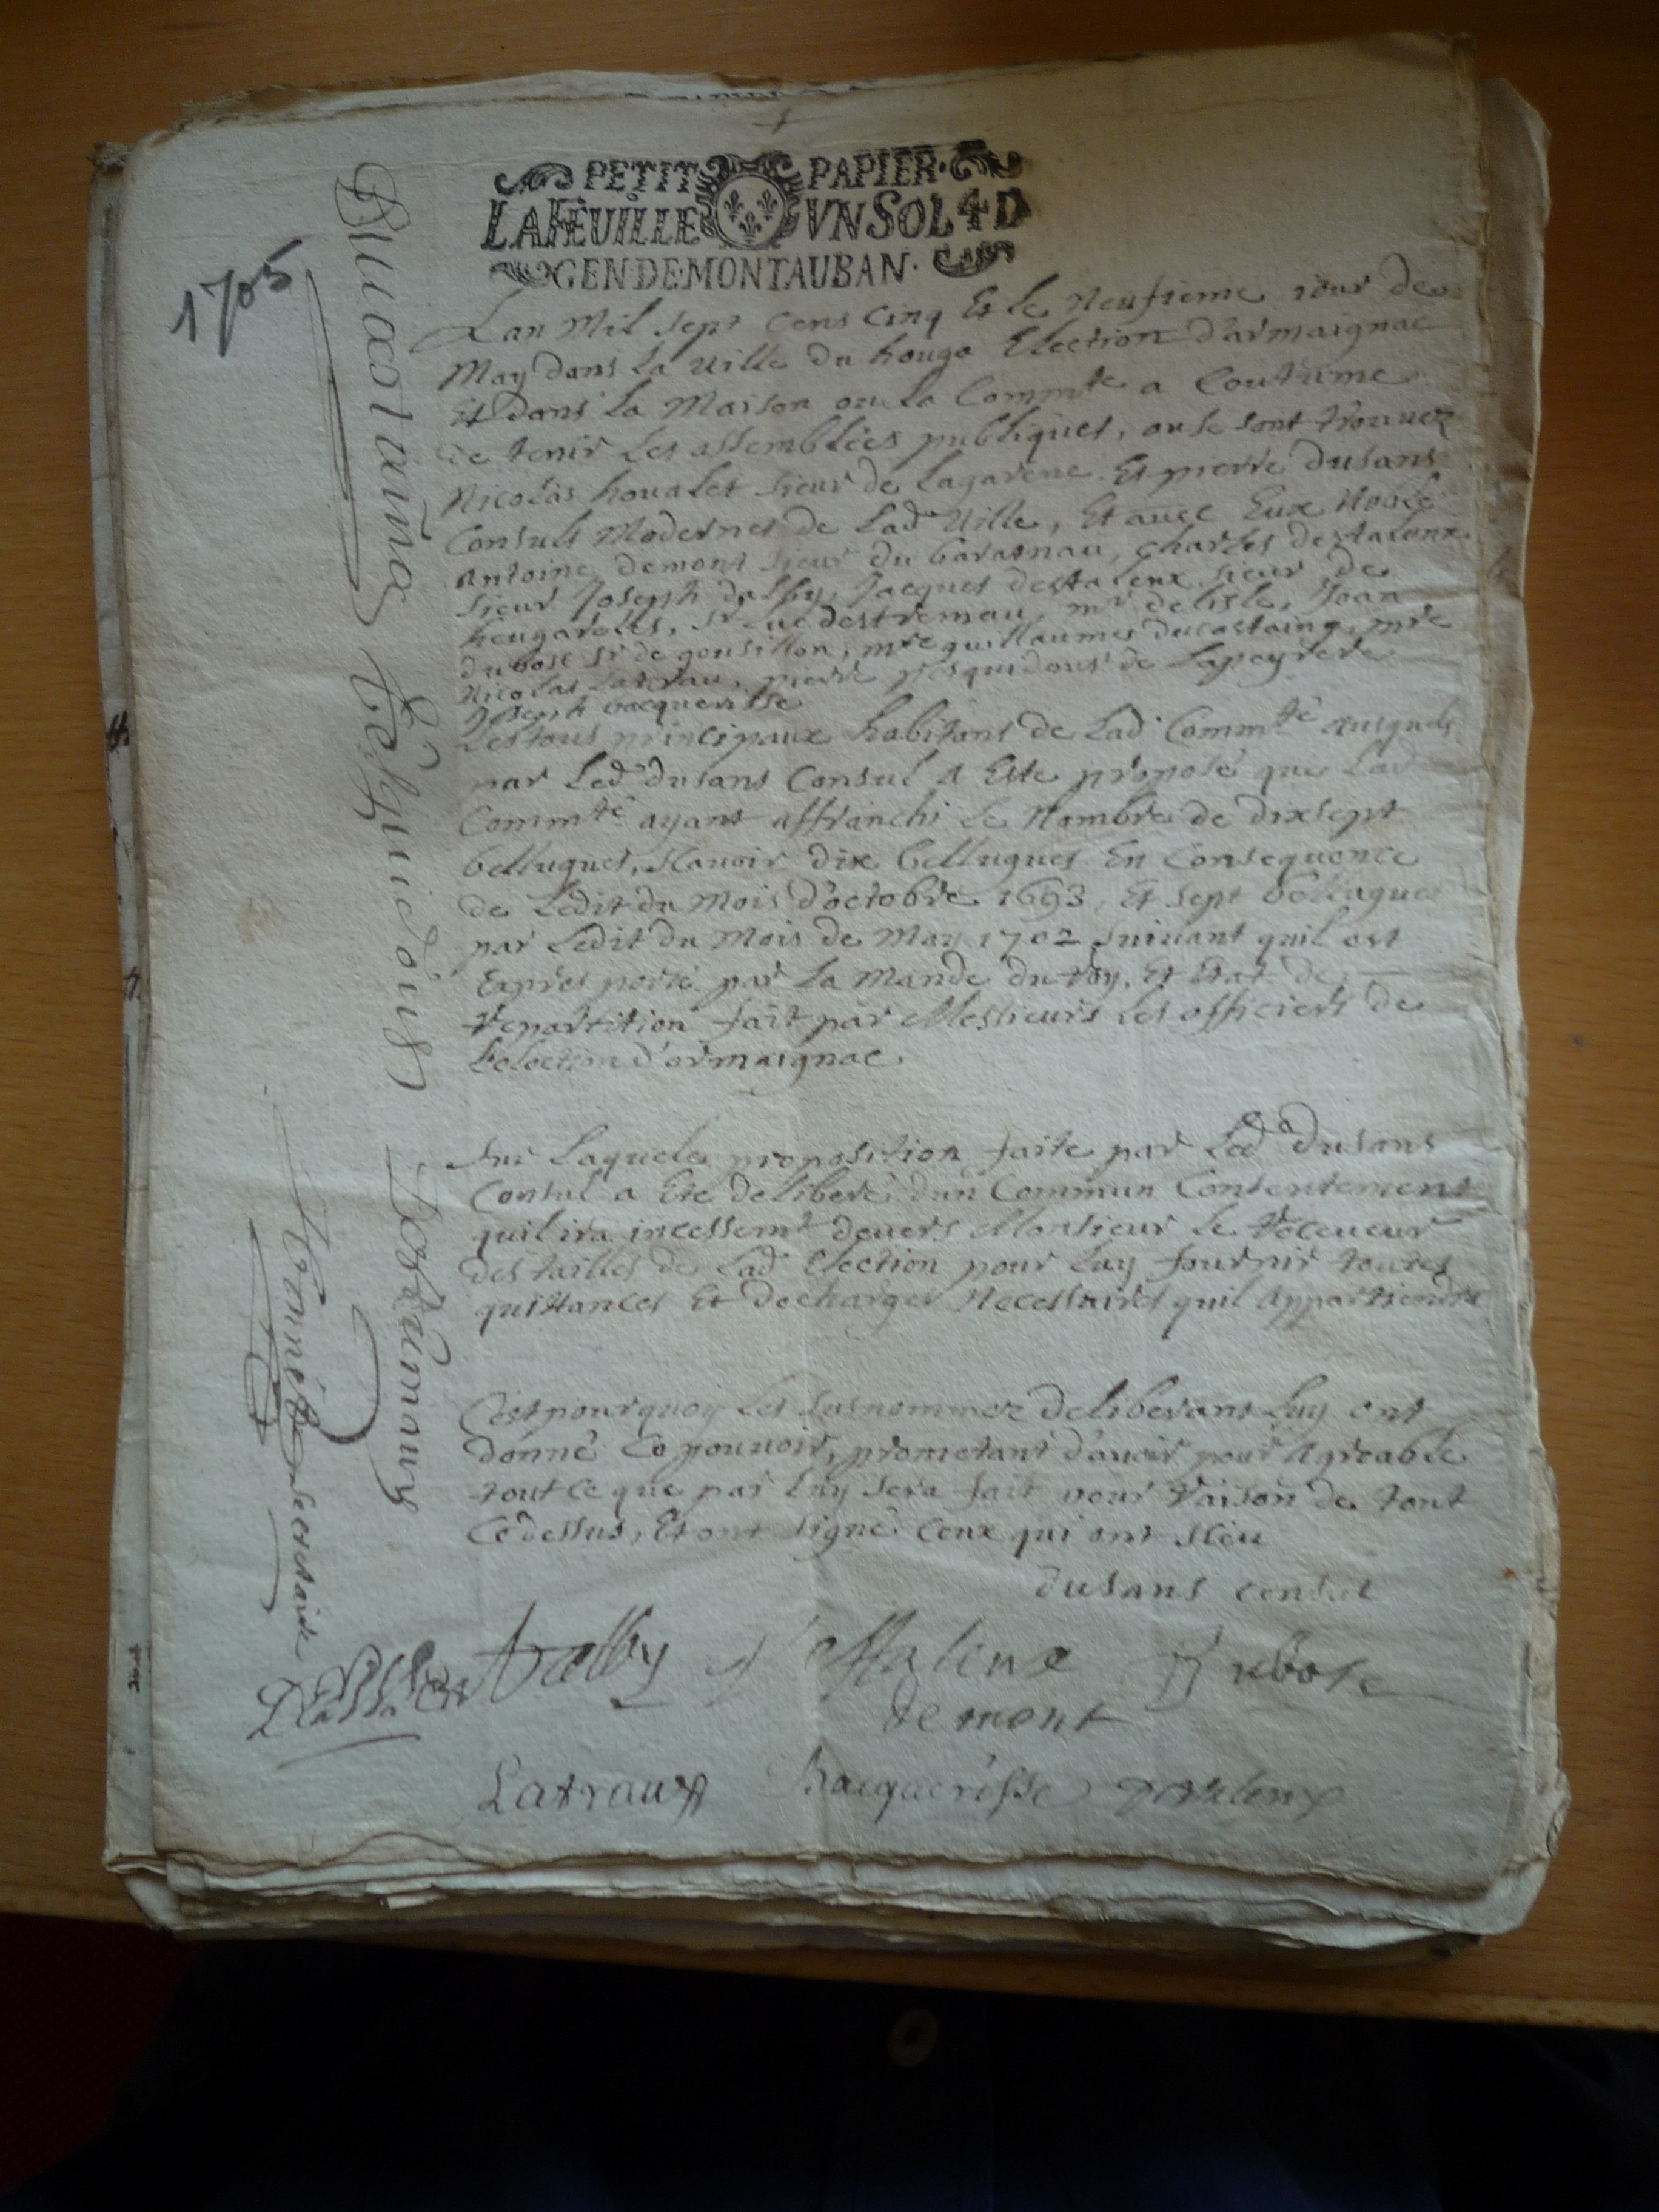 PETIT PAPIER.
LA FEUILLE VN SOL 4 D
GEN DE MONTAUBAN.
1705
Lan Mil sept Cens Cinq Et le Neufieme jour de
May dans la Ville du houga Election d'armaignac
Et dans la Maison ou la Commte a Coutume
de tenir Les assemblées publiques, ou se sont trouuez
Nicolas houalet sieur de Lagarene Et pierre dusans
Consuls Modernes de Lade Ville, Et auec Eux Noble
Antoine demont sieur du , Charles destalenx
sieur Joseph dalby, Jacques destalenx sieur de
, Sr Luc destremau, mr delisle, Jean
dubosc Sr de gousillon, mre guillaumes ducastaing, mre
Nicolas Latrau, pierre de Lapeyrere
Joseph bacquerisse
Les tous principaux habitans de Lad Commte ausquels
par Led dusans Consul A Este proposé que Lad
Commte ayant affranchi Le Nombre de dixsept
bellugues, Scauoir dix bellugues En Consequence
de Ledit du Mois d'octobre 1693, Et sept bellugues
par Ledit du Mois de May 1702 Suivant quil est
Expres porté par La Mande du Roy, Et Etat de
repartition fait par Messieurs Les officiers de
Lelection d'armaignac.
Sur Laquele proposition faite par Led dusans
Consul a Eté deliberé dun Commun Consentement
quil ira incessemt deuers Monsieur Le Receueur
des tailles de Lad Election pour Luy fournir toutes
quittances Et decharges Necessaires quil Appartiendra
Cest pourquoy Les susnommez deliberans Luy ont
donné Ce pouuoir, prometant d'auoir pour Agreable
tout Ce que par Luy sera fait pour raison de tout
Ce dessus, Et ont signé Ceux qui ont Sceu
dusans consul
Dalby destalenx Dubosc
demont
Latrau Bacquerisse destalenx
Ducastaing
Destremau
Secretaire